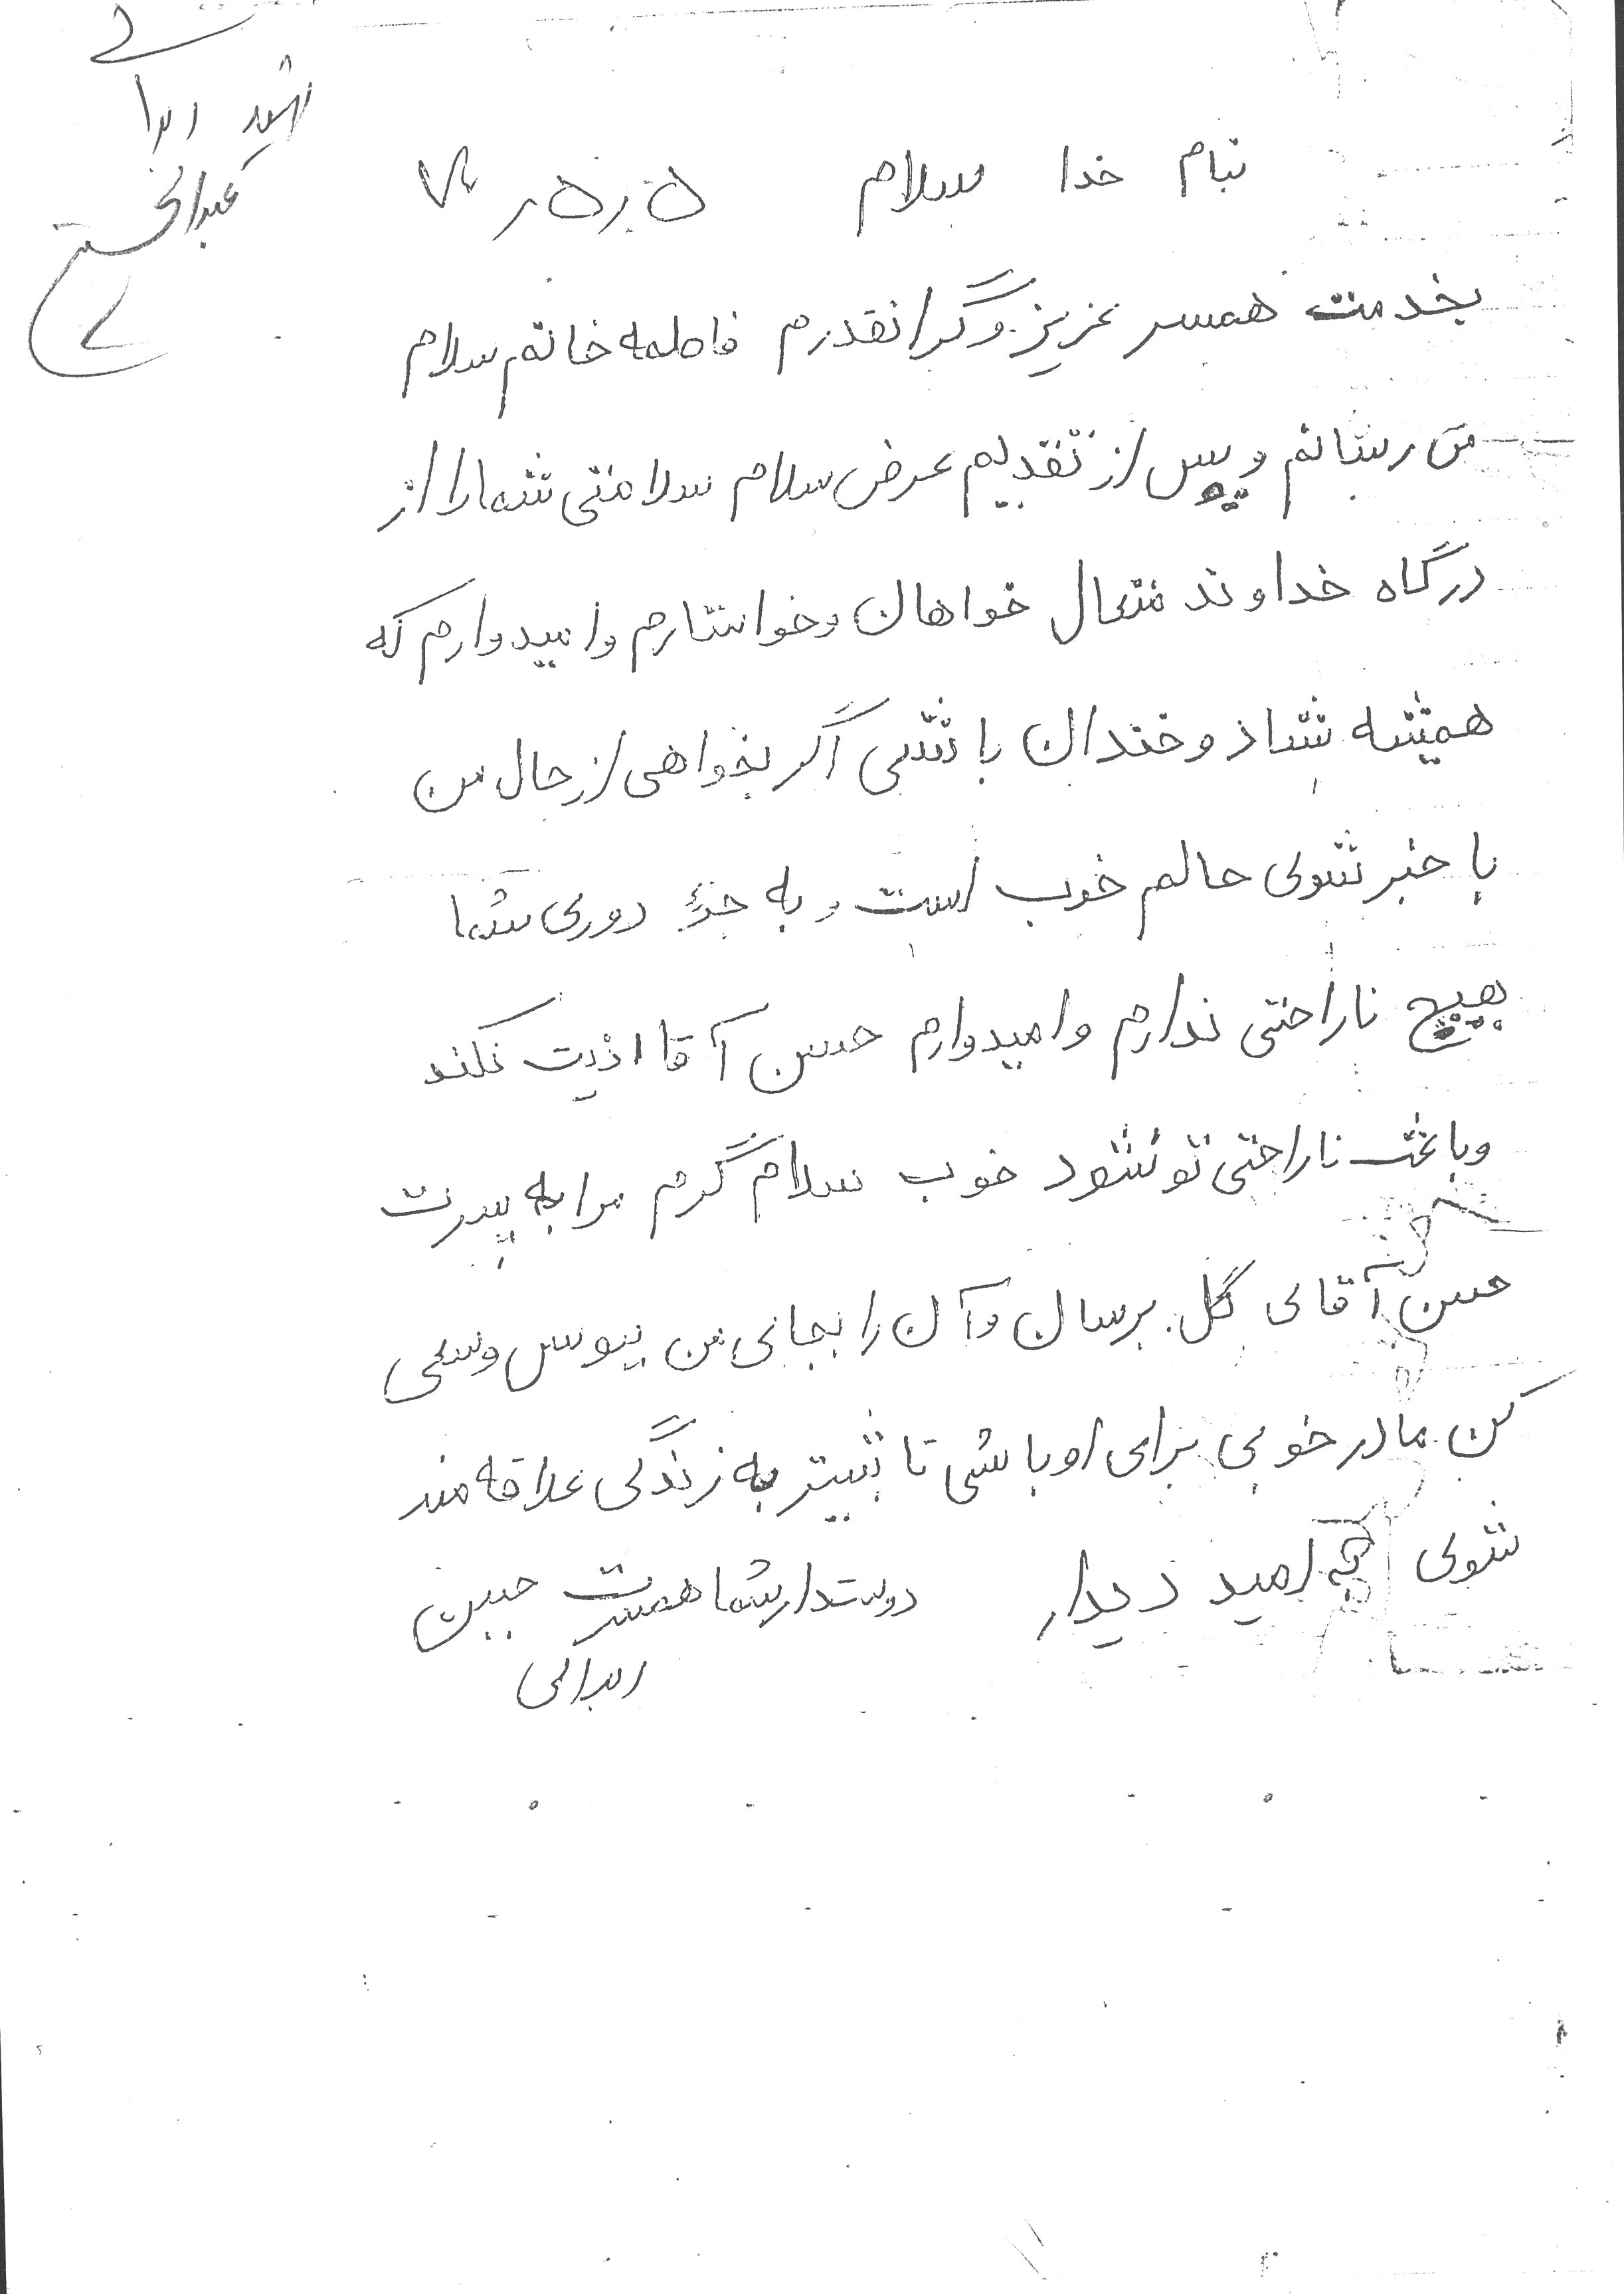 شهید ایرا
عبدالحسین
بنام خدا سلام
بخدمت همسر عزیز و گرانقدرم فاطمه خانم سلام
می رسانم و پس از تقدیم عرض سلام سلامتی شما را از
درگاه خداوند متعال خواهان و خواستارم و امیدوارم که
همیشه شاد و خندان باشی اگر بخواهی از حال من
با خبر شوی حالم خوب است و به جزء دوری شما
هیچ ناراحتی ندارم و امیدوارم حسن آقا اذیت نکند
و باعث ناراحتی تو نشود خوب سلام گرم مرا به پسرت
حسن آقای گل برسان و آن را بجای من ببوس و سعی
کن مادر خوبی برای او باشی تا بیشتر به زندگی علاقه مند
شوی به امید دیدار دوستدار شما همسرت حسین
ایرائی